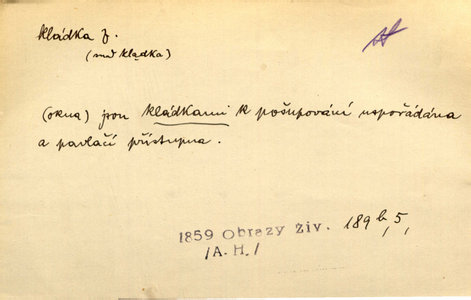 kládka f.
(mod kladka)
(okna) jsou kládkami k pošupování uspořádána
a pavlačí přístupna.
1859 Obrazy živ. 189 b, 5,
/A.H./